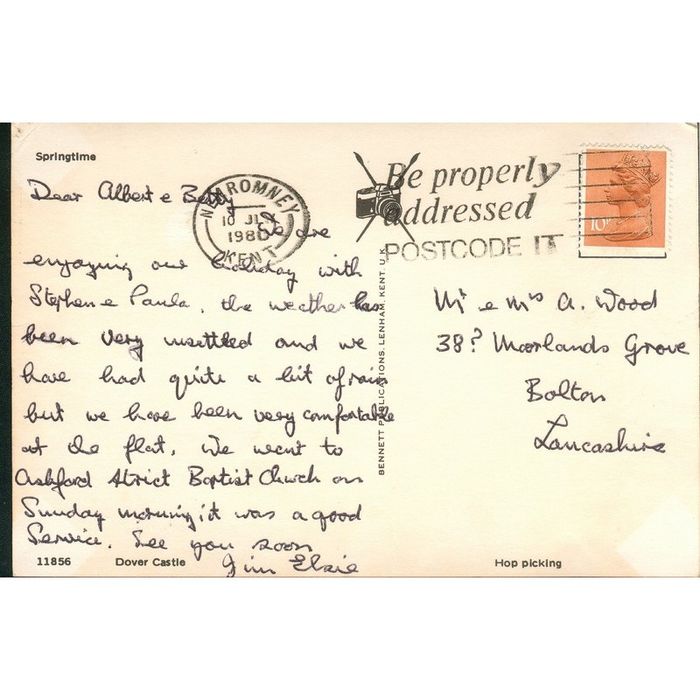 Springtime
Dear Albert e Betty
We are
enjoying our holiday with
Stephen e Paula, the weather has
been very unsettled and we
have had quite a bit of rain
but we have been very comfortable
at the flat. We went to
Ashford Strict Baptist Church on
Sunday morning it was a good
Service. See you soon
Jim Elsie
11856 Dover Castle
NEW ROMNEY
KENT
10 JLY
1980
Be properly
addressed
POSTCODE IT
10P
BENNETT PUBLICATIONS. LENHAM, KENT. U.K.
Mr e Mrs A. Wood
38? Morlands Grove
Bolton
Lancashire
Hop picking